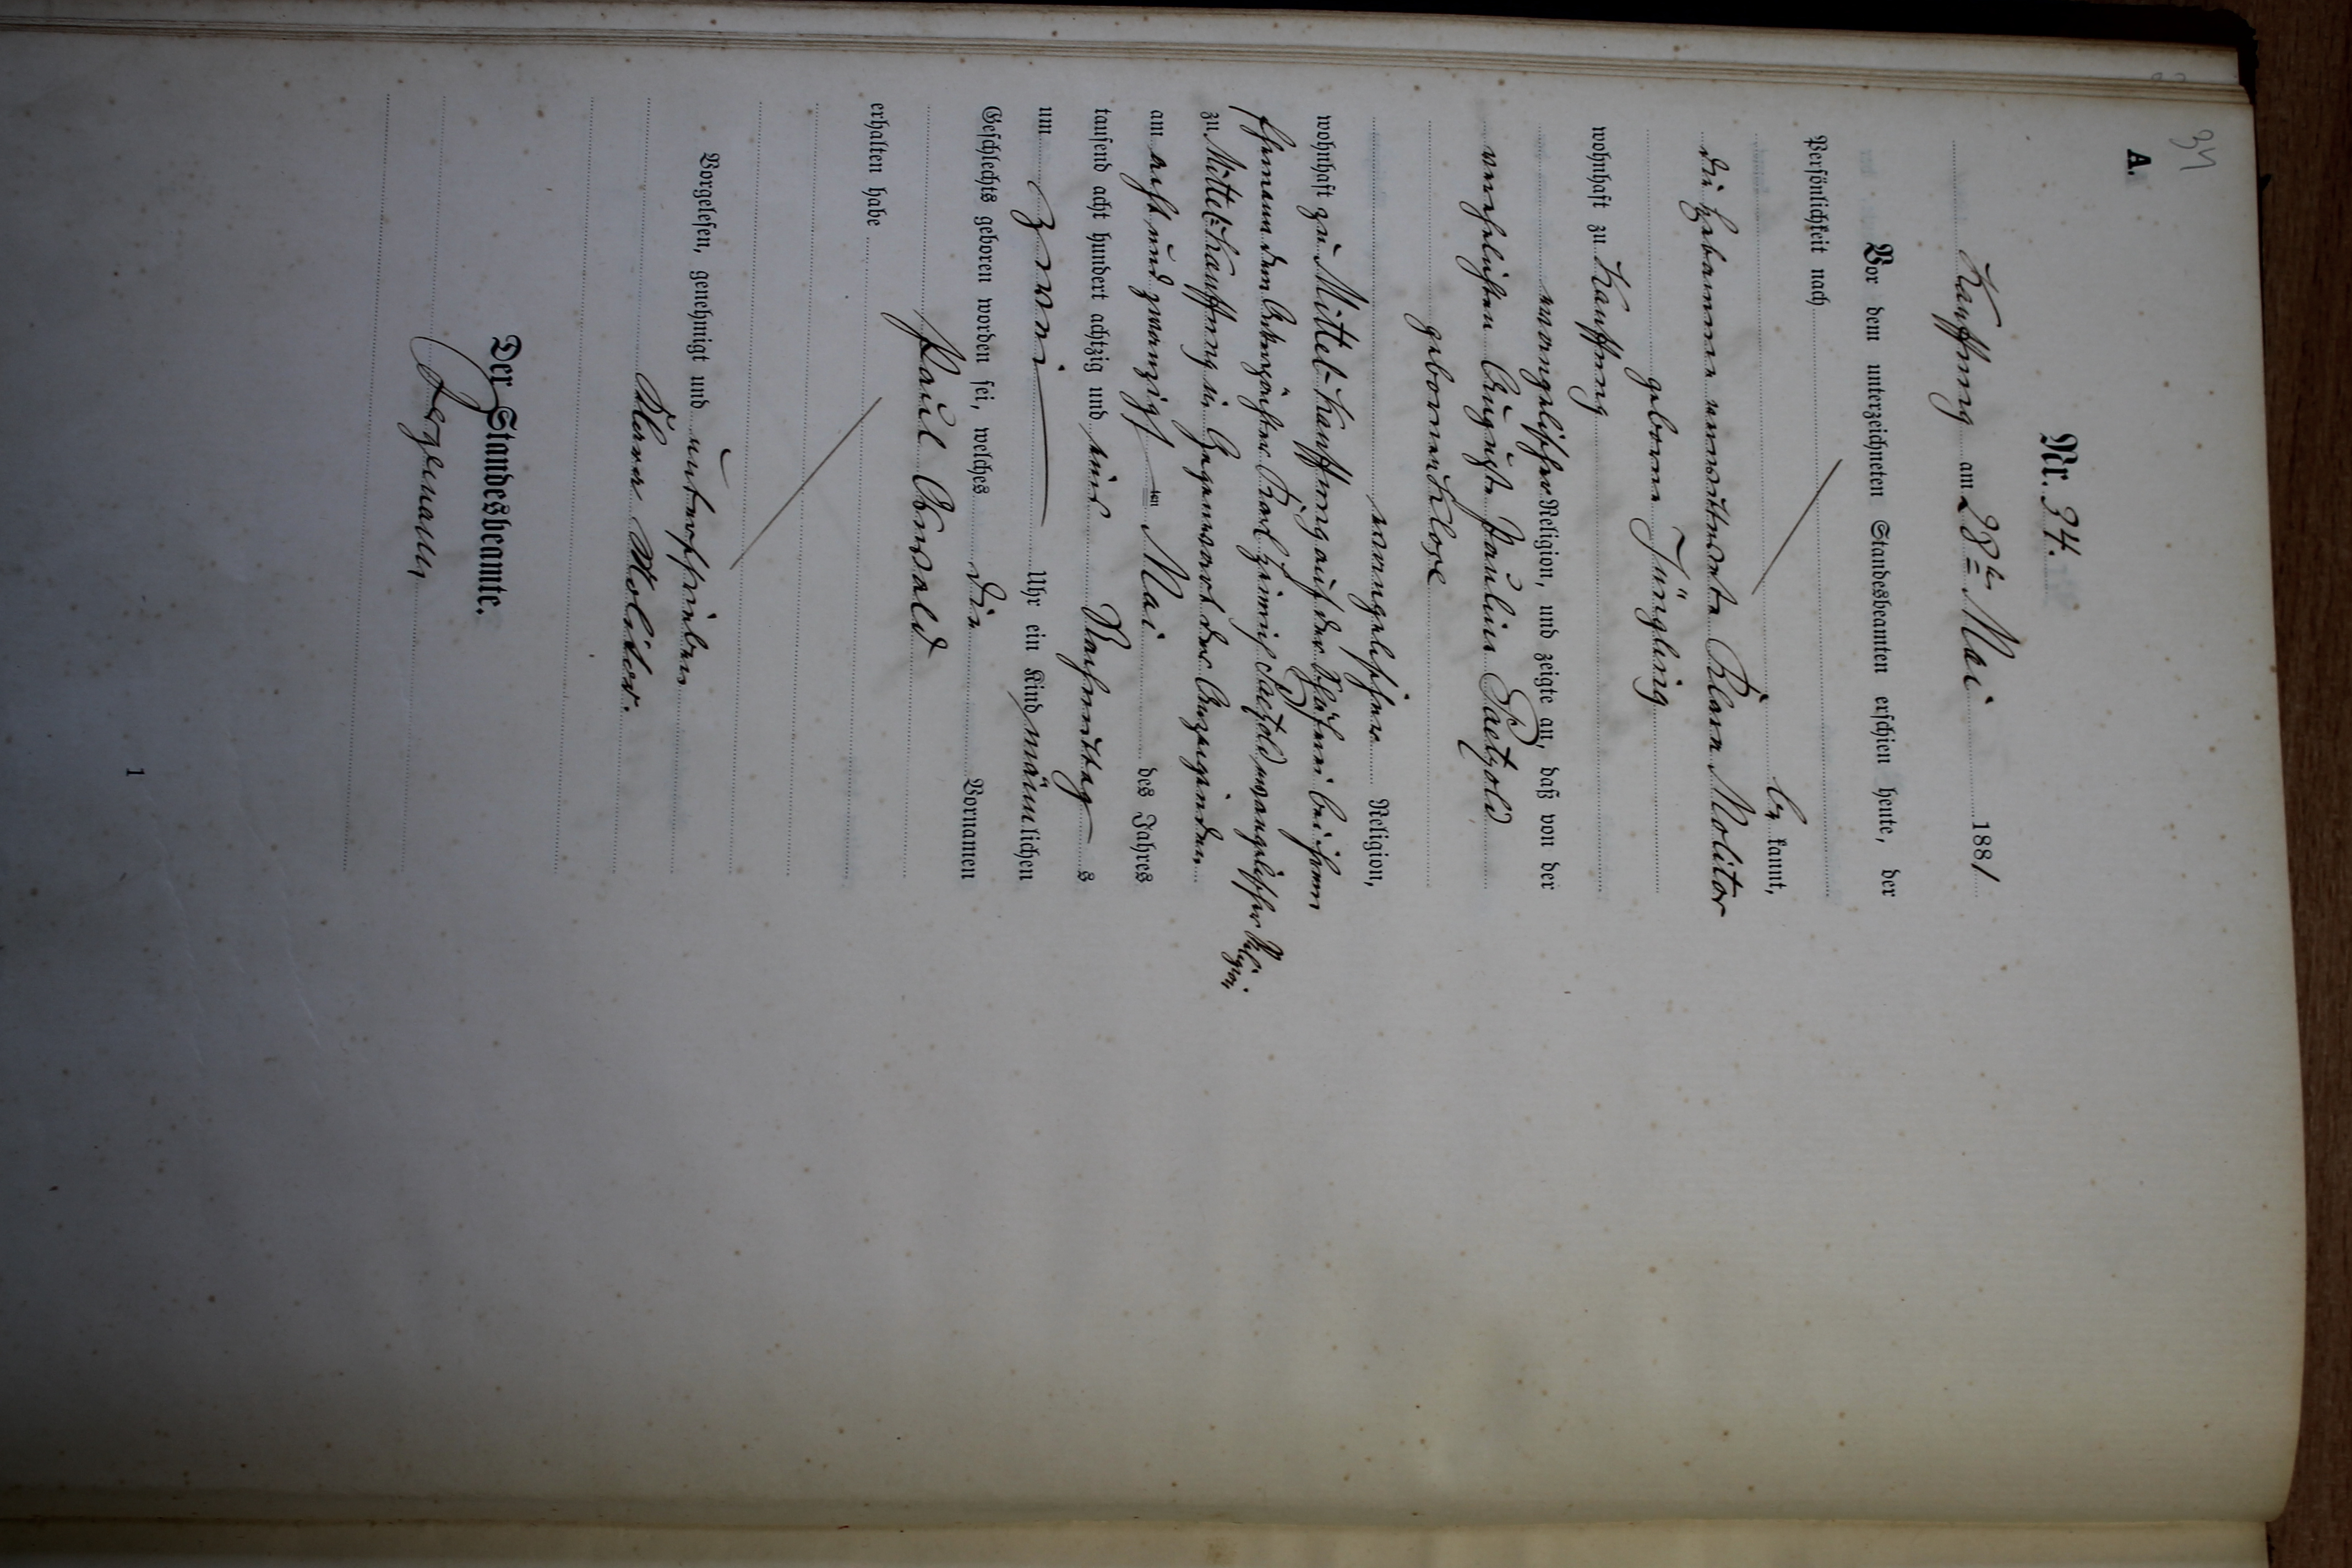 34
A.
Nr. 34.
Kauffung am 28ten Mai 1881
Vor dem unterzeichneten Standesbeamten erschien heute, der
Persönlichkeit nach
be kannt,
die Hebamme verwittwete Klara Molitor
geborne Jüngling
wohnhaft zu Kauffung
evangelischer Religion, und zeigte an, daß von der
verehelichten Auguste Pauline Paetzold
geborner Klose
evangelischer Religion,
wohnhaft zu Mittel-Kauffung auf der bei ihrem
Ehemann dem Karl Heinrich Paetzold evangelischer Religion
zu Mittel-Kauffung in Gegenwart der Anzeigenden
am acht und zwanzigsten Mai des Jahres
tausend acht hundert achtzig und eins Nachmittag s
um zwei Uhr ein Kind männlichen
Geschlechts geboren worden sei, welches die Vornamen
Paul Oswald
erhalten habe
Vorgelesen, genehmigt und unterschrieben
Klara Molitor.
Der Standesbeamte.
1